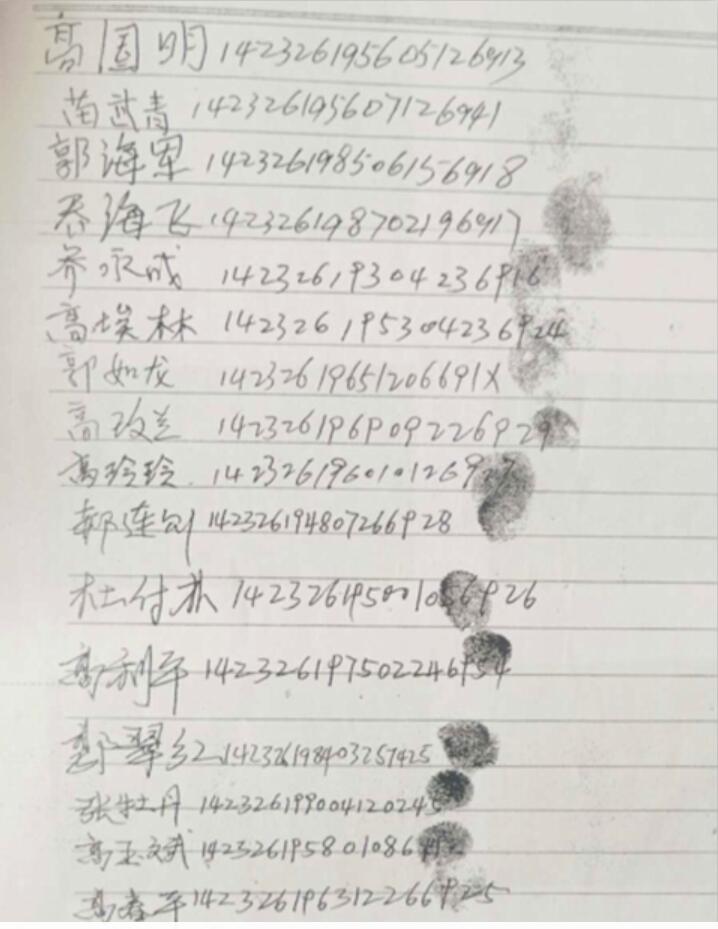 高国明 142326195605126913
苗武青 142326195607126941
郭海军 142326198506156918
乔海飞 142326198702196917
乔永成 142326193004236916
高埃林 142326195304236924
郭如龙 14232619651206691X
高改兰 142326196909226929
高玲玲 142326196010126927
郝连钊 142326194807266928
杜付林 142326195001056926
高利平 142326197502246954
翠红 142326198403257425
张牡丹 142326199004120245
高玉斌 14232619580108
高春平 142326196312266925